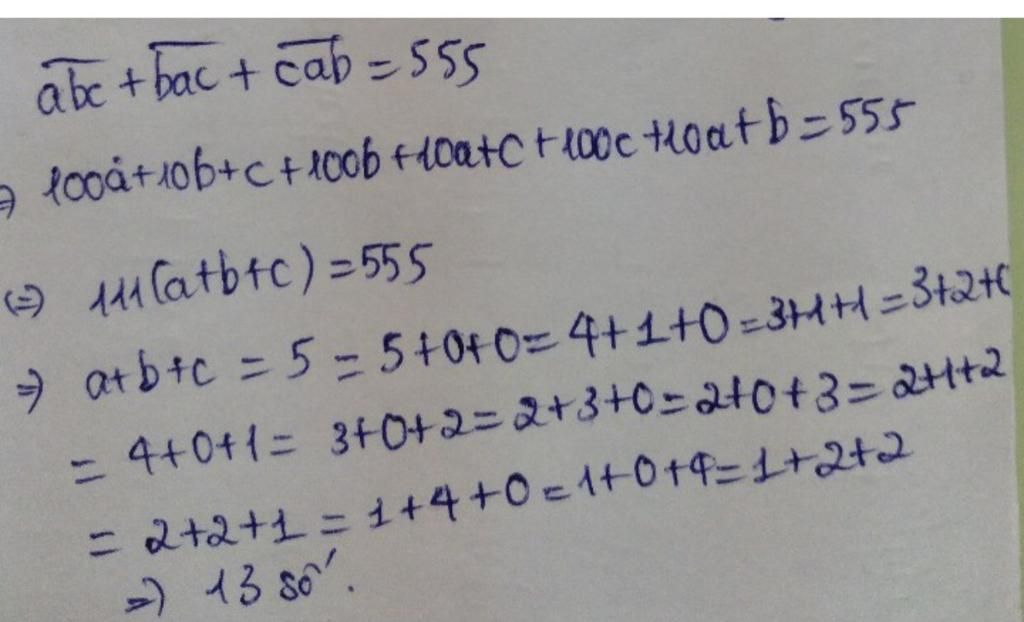 abc + bac + cab = 555
⇒ 100a+10b+c+100b+10a+c+100c+10a+b=555
(=) 111(a+b+c)=555
⇒ a+b+c = 5 = 5+0+0= 4+1+0=3+1+1=3+2+0
= 4+0+1= 3+0+2=2+3+0=2+0+3=2+1+2
= 2+2+1 = 1+4+0=1+0+4=1+2+2
=) 13 số.